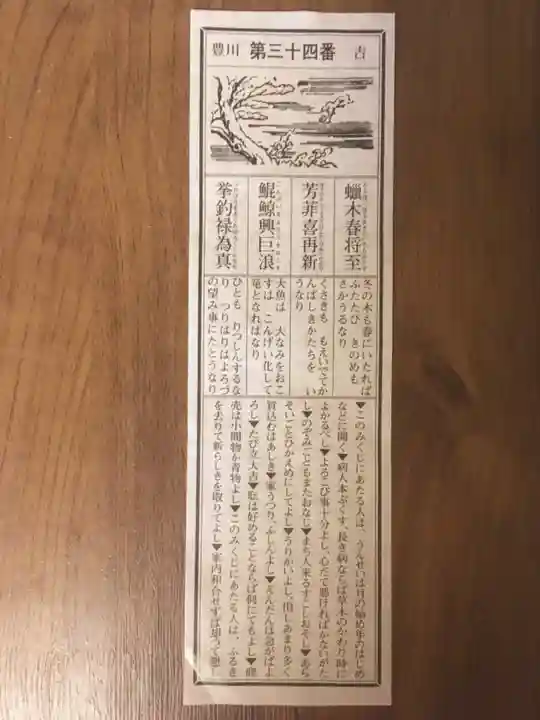 豊川 第三十四番 吉
蠟木春将至
芳菲喜再新
鯤鯨興巨浪
挙釣禄為真
冬の木も春にいたれば
ふたたび きのめも
さかうるなり
くさきも もえいでてか
んばしきかたちを い
うなり
大魚は 大なみをおこ
すは こんげい化して
竜となればなり
ひとも りっしんするな
り つりはりはよろづ
の望み事にたとうなり
▼このみくじにあたる人は、うんせいは月の始め年のはじめ
などに開く▼病人本ぷくす、長き病ならば草木のかわり時に
よかるべし▼よろこび事十分よし、心だて悪ければかないがた
し▼のぞみごともまたおなじ▼まち人来るすこしおそし▼あら
そいごとひかえめにしてよし▼うりかいよし、但しあまり多く
買込むはあしき▼家うつり、ふしんよし▼えんだんは急がばよ
ろし▼たび立大吉▼
は好めることならば何にてもよし▼商
売は小間物か青物よし▼このみくじにあたる人は、ふるき
を去りて新らしきを取りてよし▼家内和合せずば却って悪し